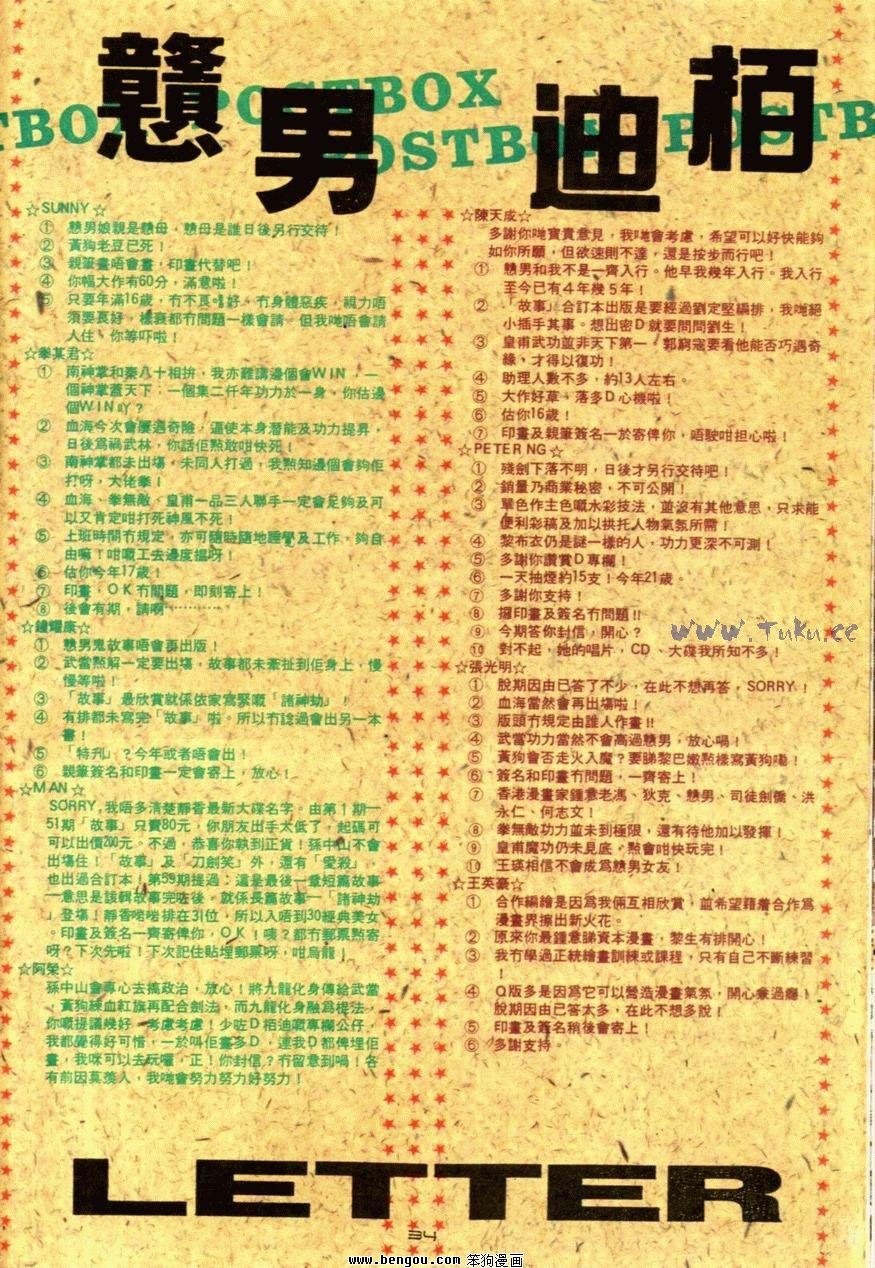 戇男 迪栢
POSTBOX
POSTBOX
POSTB
☆SUNNY☆
① 戇男娘親是戇母，戇母是誰日後另行交待！
② 黃狗老豆已死！
③ 親筆畫唔會畫，印畫代替吧！
④ 你幅大作有60分，滿意啦！
⑤ 只要年滿16歲，冇不良嗜好，冇身體惡疾，視力唔
須要良好，樣衰都冇問題一樣會請，但我哋唔會請
人住，你等吓啦！
☆拳某君☆
① 南神掌和秦八十相拚，我亦難講邊個會WIN，一
個神掌蓋天下；一個集二仟年功力於一身，你估邊
個WIN吖？
② 血海今次會屢遇奇險，逼使本身潛能及功力提昇，
日後爲禍武林，你話佢點敢咁快死！
③ 南神掌都未出塲，未同人打過，我點知邊個夠佢
打呀，大佬拳！
④ 血海、拳無敵、皇甫一品三人聯手一定會足夠及可
以又肯定咁打死神風不死！
⑤ 上班時間冇規定，亦可隨時隨地睡覺及工作，夠自
由嘛！咁嘅工去邊度搵呀！
⑥ 估你今年17歲！
⑦ 印畫，OK冇問題，即刻寄上！
⑧ 後會有期，請啊…………
☆鍾耀康☆
① 戇男鬼故事唔會再出版！
② 武當點解一定要出塲，故事都未牽扯到佢身上，慢
慢等啦！
③ 「故事」最欣賞就係依家寫緊嘅「諸神劫」！
④ 有排都未寫完「故事」啦。所以冇諗過會出另一本
書！
⑤ 「特刋」？今年或者唔會出！
⑥ 親筆簽名和印畫一定會寄上，放心！
☆MAN☆
SORRY，我唔多清楚靜香最新大碟名字。由第1期—
51期「故事」只賣80元，你朋友出手太低了，起碼可
可以出價200元。不過，恭喜你執到正貨！孫中山不會
出塲住！「故事」及「刀劍笑」外，還有「愛殺」，
也出過合訂本！第59期提過：這是最後一章短篇故事
—意思是該輯故事完咗後，就係長篇故事—「諸神劫」
登塲！靜香啱啱排在31位，所以入唔到30經典美女
。印畫及簽名一齊寄俾你，OK！咦？都冇郵票點寄
呀？下次先啦！下次記住貼埋郵票呀，咁烏龍！
☆阿榮☆
孫中山會專心去搞政治，放心！將九龍化身傳給武當
，黃狗練血紅旗再配合劍法，而九龍化身融爲棍法，
你嘅提議幾好，考慮考慮！少咗D栢迪嘅專欄公仔，
我都覺得好可惜，一於叫佢畫多D，連我D都俾埋佢
畫，我咪可以去玩囉，正！你封信？冇留意到喎！各
有前因莫羨人，我哋會努力努力好努力！
☆陳天成☆
多謝你哋寶貴意見，我哋會考慮，希望可以好快能夠
如你所願，但欲速則不達，還是按步而行吧！
① 戇男和我不是一齊入行。他早我幾年入行。我入行
至今已有4年幾5年！
② 「故事」合訂本出版是要經過劉定堅編排，我哋絕
小插手其事。想出密D就要問問劉生！
③ 皇甫武功並非天下第一，郭窮寇要看他能否巧遇奇
緣，才得以復功！
④ 助理人數不多，約13人左右。
⑤ 大作好草，落多D心機啦！
⑥ 估你16歲！
⑦ 印畫及親筆簽名一於寄俾你，唔駛咁担心啦！
☆PETER NG☆
① 殘劍下落不明，日後才另行交待吧！
② 銷量乃商業秘密，不可公開！
③ 單色作主色嘅水彩技法，並沒有其他意思，只求能
便利彩稿及加以拱托人物氣氛所需！
④ 黎布衣仍是謎一樣的人，功力更深不可測！
⑤ 多謝你讚賞D專欄！
⑥ 一天抽煙約15支！今年21歲。
⑦ 多謝你支持！
⑧ 攞印畫及簽名冇問題!!
⑨ 今期答你封信，開心？
⑩ 對不起，她的唱片，CD、大碟我所知不多！
☆張光明☆
① 脫期因由已答了不少，在此不想再答，SORRY！
② 血海當然會再出塲啦！
③ 版頭冇規定由誰人作畫!!
④ 武當功力當然不會高過戇男，放心喎！
⑤ 黃狗會否走火入魔？要睇黎巴嫩點樣寫黃狗嘞！
⑥ 簽名和印畫冇問題，一齊寄上！
⑦ 香港漫畫家鍾意老馮、狄克、戇男、司徒劍僑、洪
永仁、何志文！
⑧ 拳無敵功力並未到極限，還有待他加以發揮！
⑨ 皇甫魔功仍未見底，點會咁快玩完！
⑩ 王瑛相信不會成爲戇男女友！
☆王英豪☆
① 合作編繪是因爲我倆互相欣賞，並希望藉着合作爲
漫畫界擦出新火花。
② 原來你最鍾意睇資本漫畫，黎生有排開心！
③ 我冇學過正統繪畫訓練或課程，只有自己不斷練習
！
④ Q版多是因爲它可以營造漫畫氣氛，開心兼過癮！
脫期因由已答太多，在此不想多說！
⑤ 印畫及簽名稍後會寄上！
⑥ 多謝支持。
www.Tuku.cc
LETTER
34
www.bengou.com 笨狗漫画